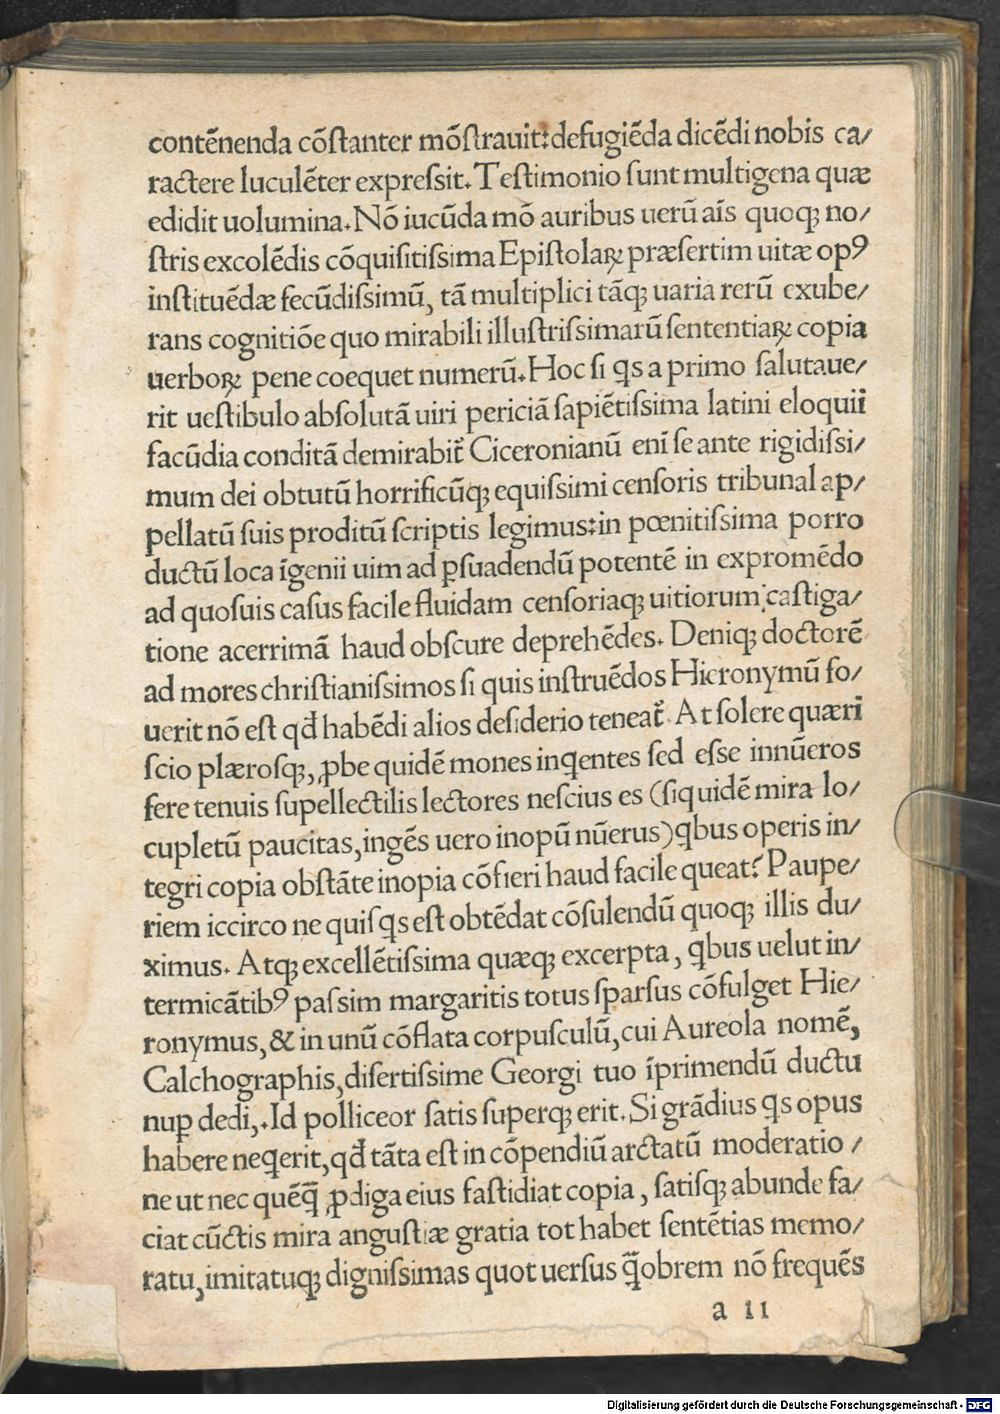 contēnenda cōſtanter mōſtrauit:defugiēda dicēdi nobis ca/
ractere luculēter expreſsit. Teſtimonio ſunt multigena quæ
edidit uolumina. Nō iucūda mō auribus uerū aīs quoqꝫ no/
ſtris excolēdis cōquiſitiſsima Epiſtolaꝝ præſertim uitæ opꝰ
inſtituēdæ fecūdiſsimū, tā multiplici tāqꝫ uaria rerū exube/
rans cognitiōe quo mirabili illuſtriſsimarū ſententiaꝝ copia
uerboꝝ pene coequet numerū. Hoc ſi qs a primo ſalutaue/
rit ueſtibulo abſolutā uiri periciā ſapiētiſsima latini eloquii
facūdia conditā demirabit̃ Ciceronianū enī ſe ante rigidiſsi/
mum dei obtutū horrificūqꝫ equiſsimi cenſoris tribunal ap/
pellatū ſuis proditū ſcriptis legimus:in pœnitiſsima porro
ductū loca īgenii uim ad ꝑſuadendū potentē in expromēdo
ad quoſuis caſus facile fluidam cenſoriaqꝫ uitiorum caſtiga/
tione acerrimā haud obſcure deprehēdes. Deniqꝫ doctorē
ad mores chriſtianiſsimos ſi quis inſtruēdos Hieronymū fo/
uerit nō eſt qđ habēdi alios deſiderio teneat̃. At ſolere quæri
ſcio plæroſqꝫ, ꝓbe quidē mones inqentes ſed eſse innūeros
fere tenuis ſupellectilis lectores neſcius es (ſiquidē mira lo/
cupletū paucitas, ingēs uero inopū nūerus) qbus operis in/
tegri copia obſtāte inopia cōfieri haud facile queat? Paupe/
riem iccirco ne quiſqs eſt obtēdat cōſulendū quoqꝫ illis du/
ximus. Atqꝫ excellētiſsima quæqꝫ excerpta, qbus uelut in/
termicātibꝰ paſsim margaritis totus ſparſus cōfulget Hie/
ronymus, & in unū cōflata corpuſculū, cui Aureola nomē,
Calchographis, diſertiſsime Georgi tuo īprimendū ductu
nuꝑ dedi,. Id polliceor ſatis ſuperqꝫ erit. Si grādius qs opus
habere neqerit, qđ tāta eſt in cōpendiū arctatū moderatio /
ne ut nec quēq̄ ꝓdiga eius faſtidiat copia, ſatiſqꝫ abunde fa/
ciat cūctis mira anguſtiæ gratia tot habet ſentētias memo/
ratu, imitatuqꝫ digniſsimas quot uerſus q̄obrem nō frequēs
a ıı
Digitalisierung gefördert durch die Deutsche Forschungsgemeinschaft - DFG